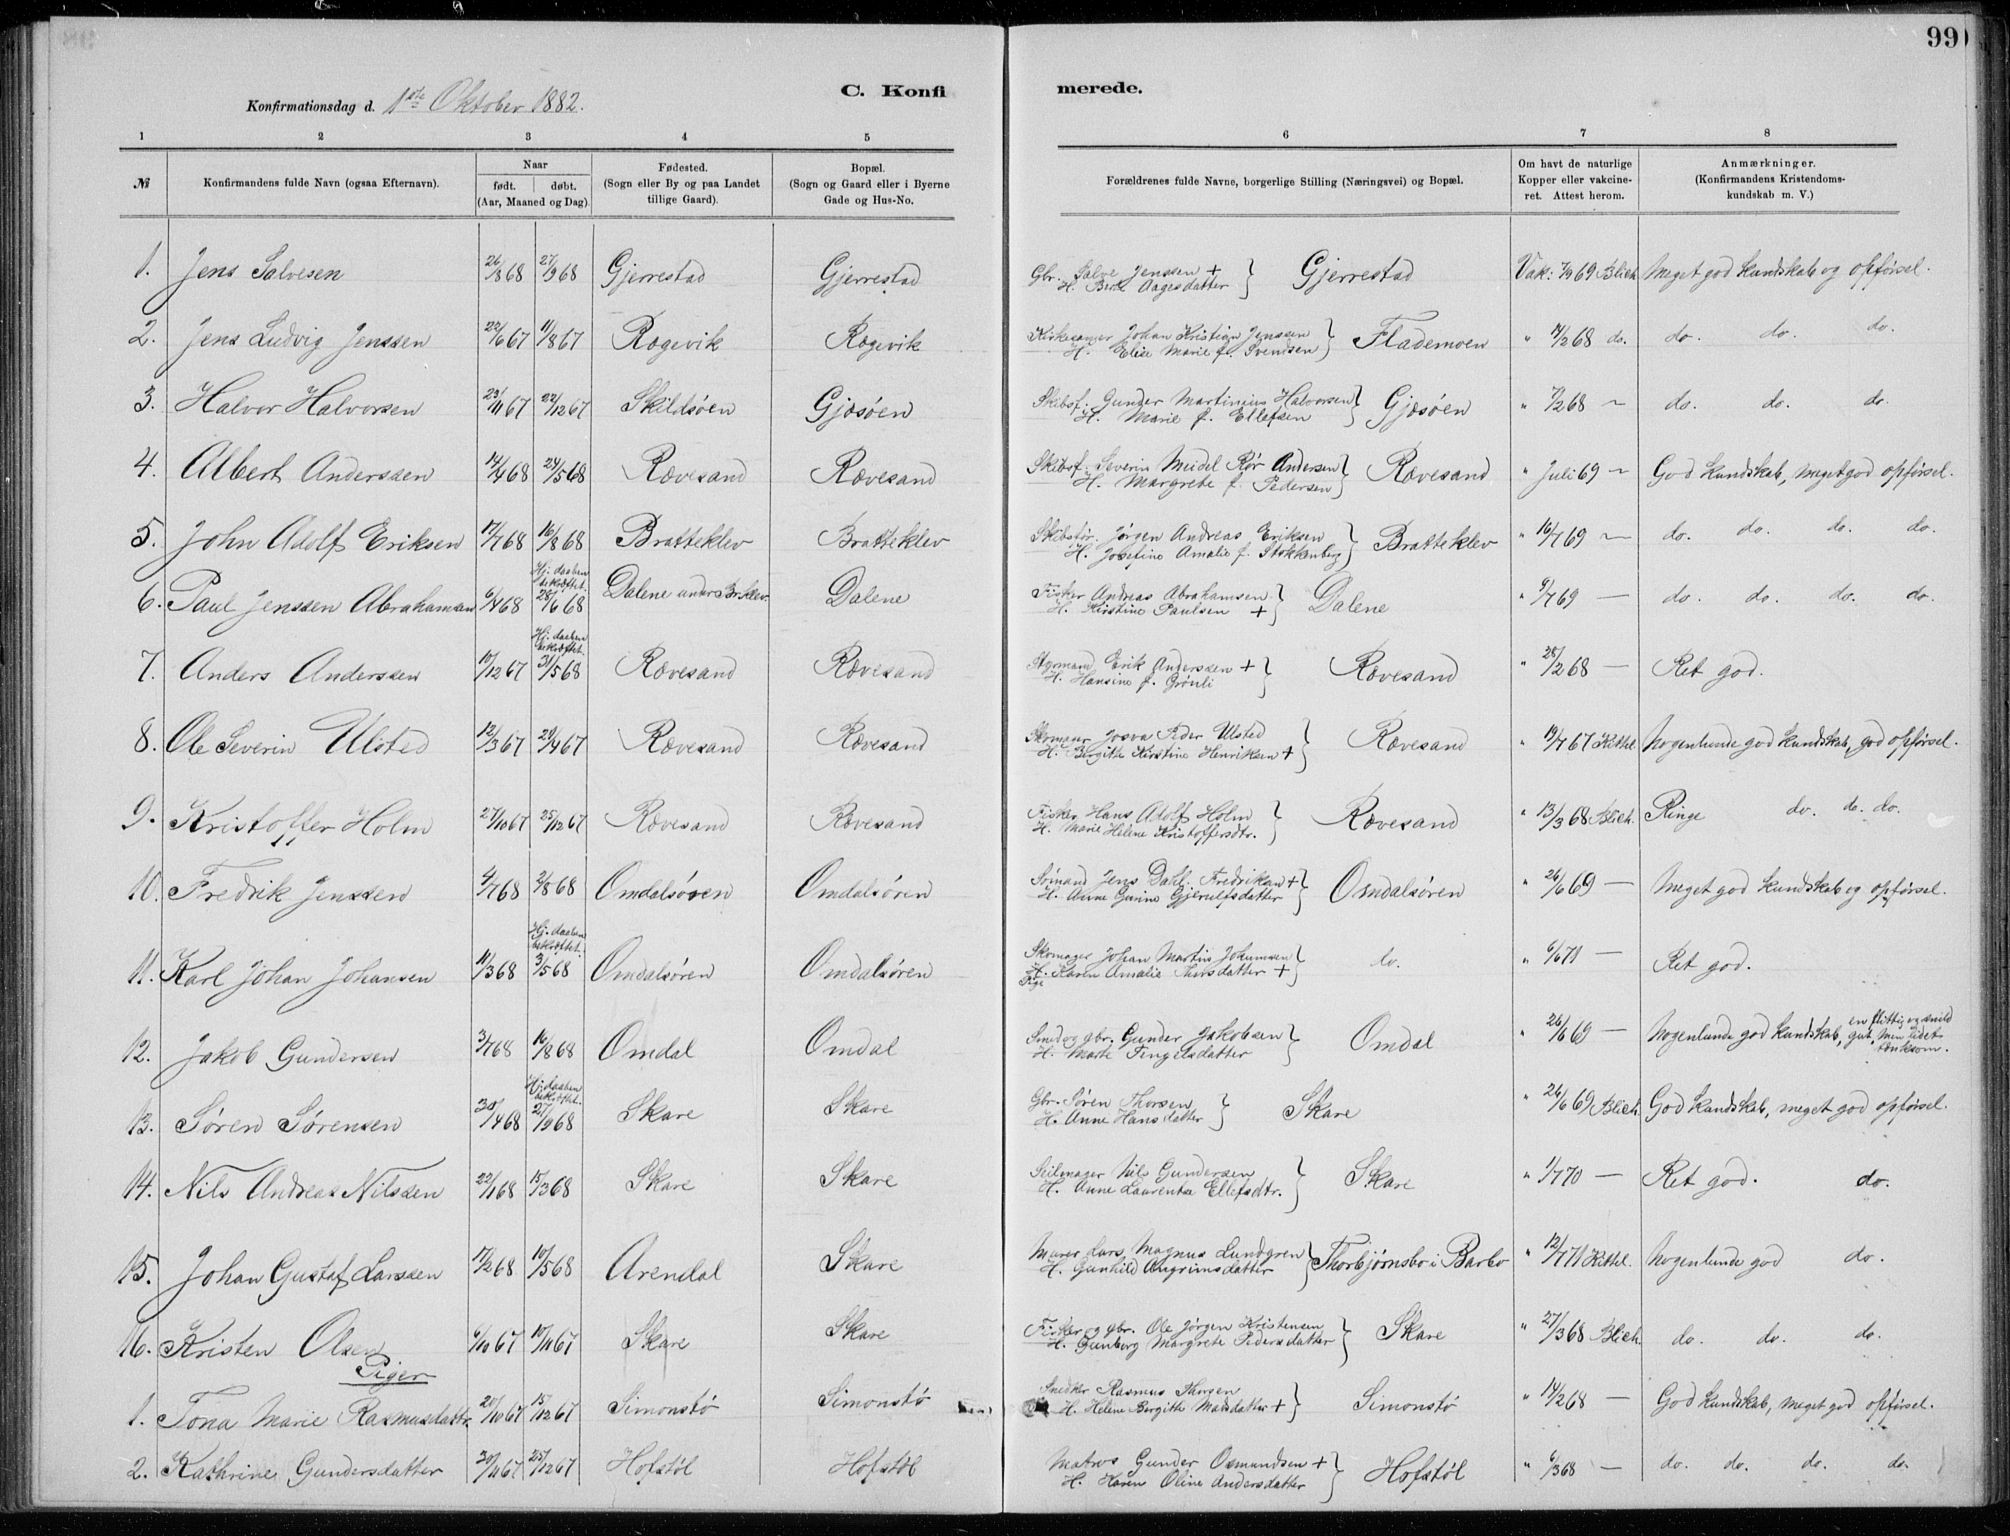 99
Konfirmationsdag d. 1ste Oktober 1882.
C. Konfi
merede.
1 2 3 4 5 6 7 8
№
Konfirmandens fulde Navn (ogsaa Efternavn).
Naar
født. døbt.
(Aar, Maaned og Dag).
Fødested.
(Sogn eller By og paa Landet
tillige Gaard).
Bopæl.
(Sogn og Gaard eller i Byerne
Gade og Hus-No.
Forældrenes fulde Navne, borgerlige Stilling (Næringsvei) og Bopæl.
Om havt de naturlige
Kopper eller vakcine-
ret. Attest herom.
Anmærkninger.
(Konfirmandens Kristendoms-
kundskab m. V.)
1. Jens Salvesen 26/8 68 27/9 68 Gjerrestad Gjerrestad Gbr. Salve Jenssen + Gjerrestad Vak: 7/9 69 Blich. Meget god kundskab og opførsel.
H. Berte Aagesdatter
2. Jens Ludvig Jenssen 22/6 67 11/8 67 Rægevik Rægevik Kirkesanger Johan Kristian Jenssen Flademoen " 4/2 68 do. do. do. do.
H. Elise Marie f. Svendsen
3. Halvor Halvorsen 23/11 67 22/12 67 Skildsøen Gjæsøen Skibsf. Gunder Martinius Halvorsen Gjæsøen " 7/2 68 ~ do. do. do.
H. Marie f. Ellefsen
4. Albert Anderssen 14/4 68 24/5 68 Rævesand Rævesand Skibsf. Severin Meidel Rør Andersen Rævesand " Juli 69 ~ God kundskab, meget god opførsel.
H. Margrete f. Pedersen
5. John Adolf Eriksen 17/7 68 16/8 68 Bratteklev Bratteklev Skibsfør. Jørgen Andreas Eriksen Bratteklev " 16/7 69 ~ do. do. do. do.
H. Josefine Amalie f. Stokkenberg
Hj: daaben
bekræftet.
6. Paul Jenssen Abrahamsen 6/4 68 28/6 68 Dalene under Br.klev. Dalene Fisker Andreas Abrahamsen Dalene " 9/7 69 — do. do. do. do.
H. Kirstine Paulsen +
Hj: daaben
bekræftet.
7. Anders Anderssen 10/12 67 31/5 68 Rævesand Rævesand Styrmand Erik Anderssen + Rævesand " 28/2 68 — Ret god.
H. Hansine f. Grønli
8. Ole Severin Ulsted 12/3 67 29/4 67 Rævesand Rævesand Skomager Josva Peder Ulsted Rævesand " 19/7 67 Kittel. Nogenlunde god kundskab, god opførsel.
H. Birgitte Kirstine Henriksen +
9. Kristoffer Holm 27/10 67 25/12 67 Rævesand Rævesand Fisker Hans Adolf Holm Rævesand " 13/3 68 Blich. Ringe do. do. do.
H. Marie Helene Kristoffersdtr.
10. Fredrik Jenssen 4/7 68 2/8 68 Omdalsøren Omdalsøren Sømand Jens Dahl. Fredriksen + Omdalsøren " 26/6 69 — Meget god kundskab og opførsel.
H. Anne Gurine Gjerulfsdatter
Hj. daaben
bekræftet.
11. Karl Johan Johansen 11/3 68 3/5 68 Omdalsøren Omdalsøren Skomager Johan Martin Johansen do. " 6/6 71 — Ret god.
H. Karen Amalie Thorsdatter +
Pige
12. Jakob Gundersen 3/7 68 16/8 68 Omdal Omdal Smed og gbr. Gunder Jakobsen Omdal " 26/6 69 — Nogenlunde god kundskab, en flittig og snild
gut, men lidet
tænksom.
H. Marte Tengelsdatter
Hj: daaben
bekræftet.
13. Søren Sørensen 30/4 68 27/9 68 Skare Skare Gbr. Søren Thorsen Skare " 26/6 69 Blich. God kundskab, meget god opførsel.
H. Anne Hansdatter
14. Nils Andreas Nilssen 22/1 68 15/3 68 Skare Skare Seilmager Nils Gundersen Skare " 1/7 70 — Ret god. do.
H. Anne Laurentze Ellefsdtr.
15. Johan Gustaf Larssen 17/2 68 10/5 68 Arendal Skare Murer Lars Magnus Lundgren Thorbjørnsbo i Barbo " 12/7 71 Kittel. Nogenlunde god do.
H. Gunhild Angrimsdatter
16. Kristen Olsen 6/10 67 10/11 67 Skare Skare Fisker og gbr. Ole Jørgen Kristensen Skare " 27/3 68 Blich. do. do. do.
H. Gunborg Margrete Pedersdatter
Piger
1. Tona Marie Rasmusdattr. 20/10 67 15/12 67 Simonstø Simonstø Snedker Rasmus Thorsen Simonstø " 14/2 68 — God kundskab, meget god opførsel.
H. Helene Birgitte Madsdatter +
2. Kathrine Gundersdatter 20/11 67 25/12 67 Hofstøl Hofstøl Matros Gunder Osmundsen + Hofstøl " 6/3 68 — do. do. do. do.
H. Karen Oline Andersdatter